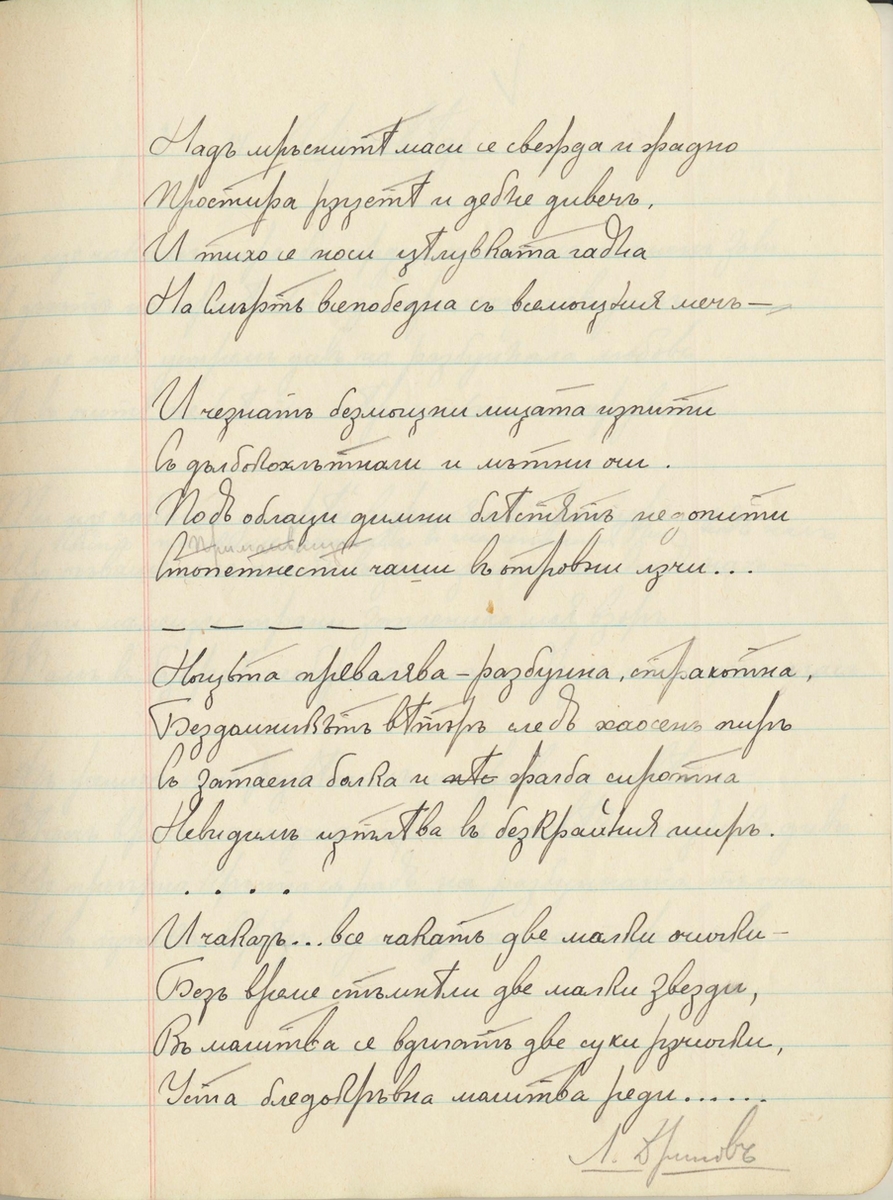 Надъ мръснитѣ маси се свежда и жадно
Простира ръцетѣ и дебне дивечъ,
И тихо се носи цѣлувката гадна
На Смърть всепобедна съ всемощния мечъ —
И чезнатъ безмощни лицата изпити
Съ дълбокохлътнали и мътни очи.
Подъ облаци димни блѣстятъ недопити
Стопетнести чаши въ отровни лъчи...
— — — — —
Нощьта превалява – разбулна, страхотна,
Бездомникътъ вѣтъръ следъ хаосенъ пиръ
Съ затаена болка и жалба сиротна
Невидимъ изпѣва въ безкрайния ширъ.
. . . .
И чакатъ... все чакатъ две малки очички –
Безъ време стъмнѣли две малки звезди,
Въ молитва се вдигатъ две сухи ръчички,
Уста бледокръвна молитва реди......
Л.